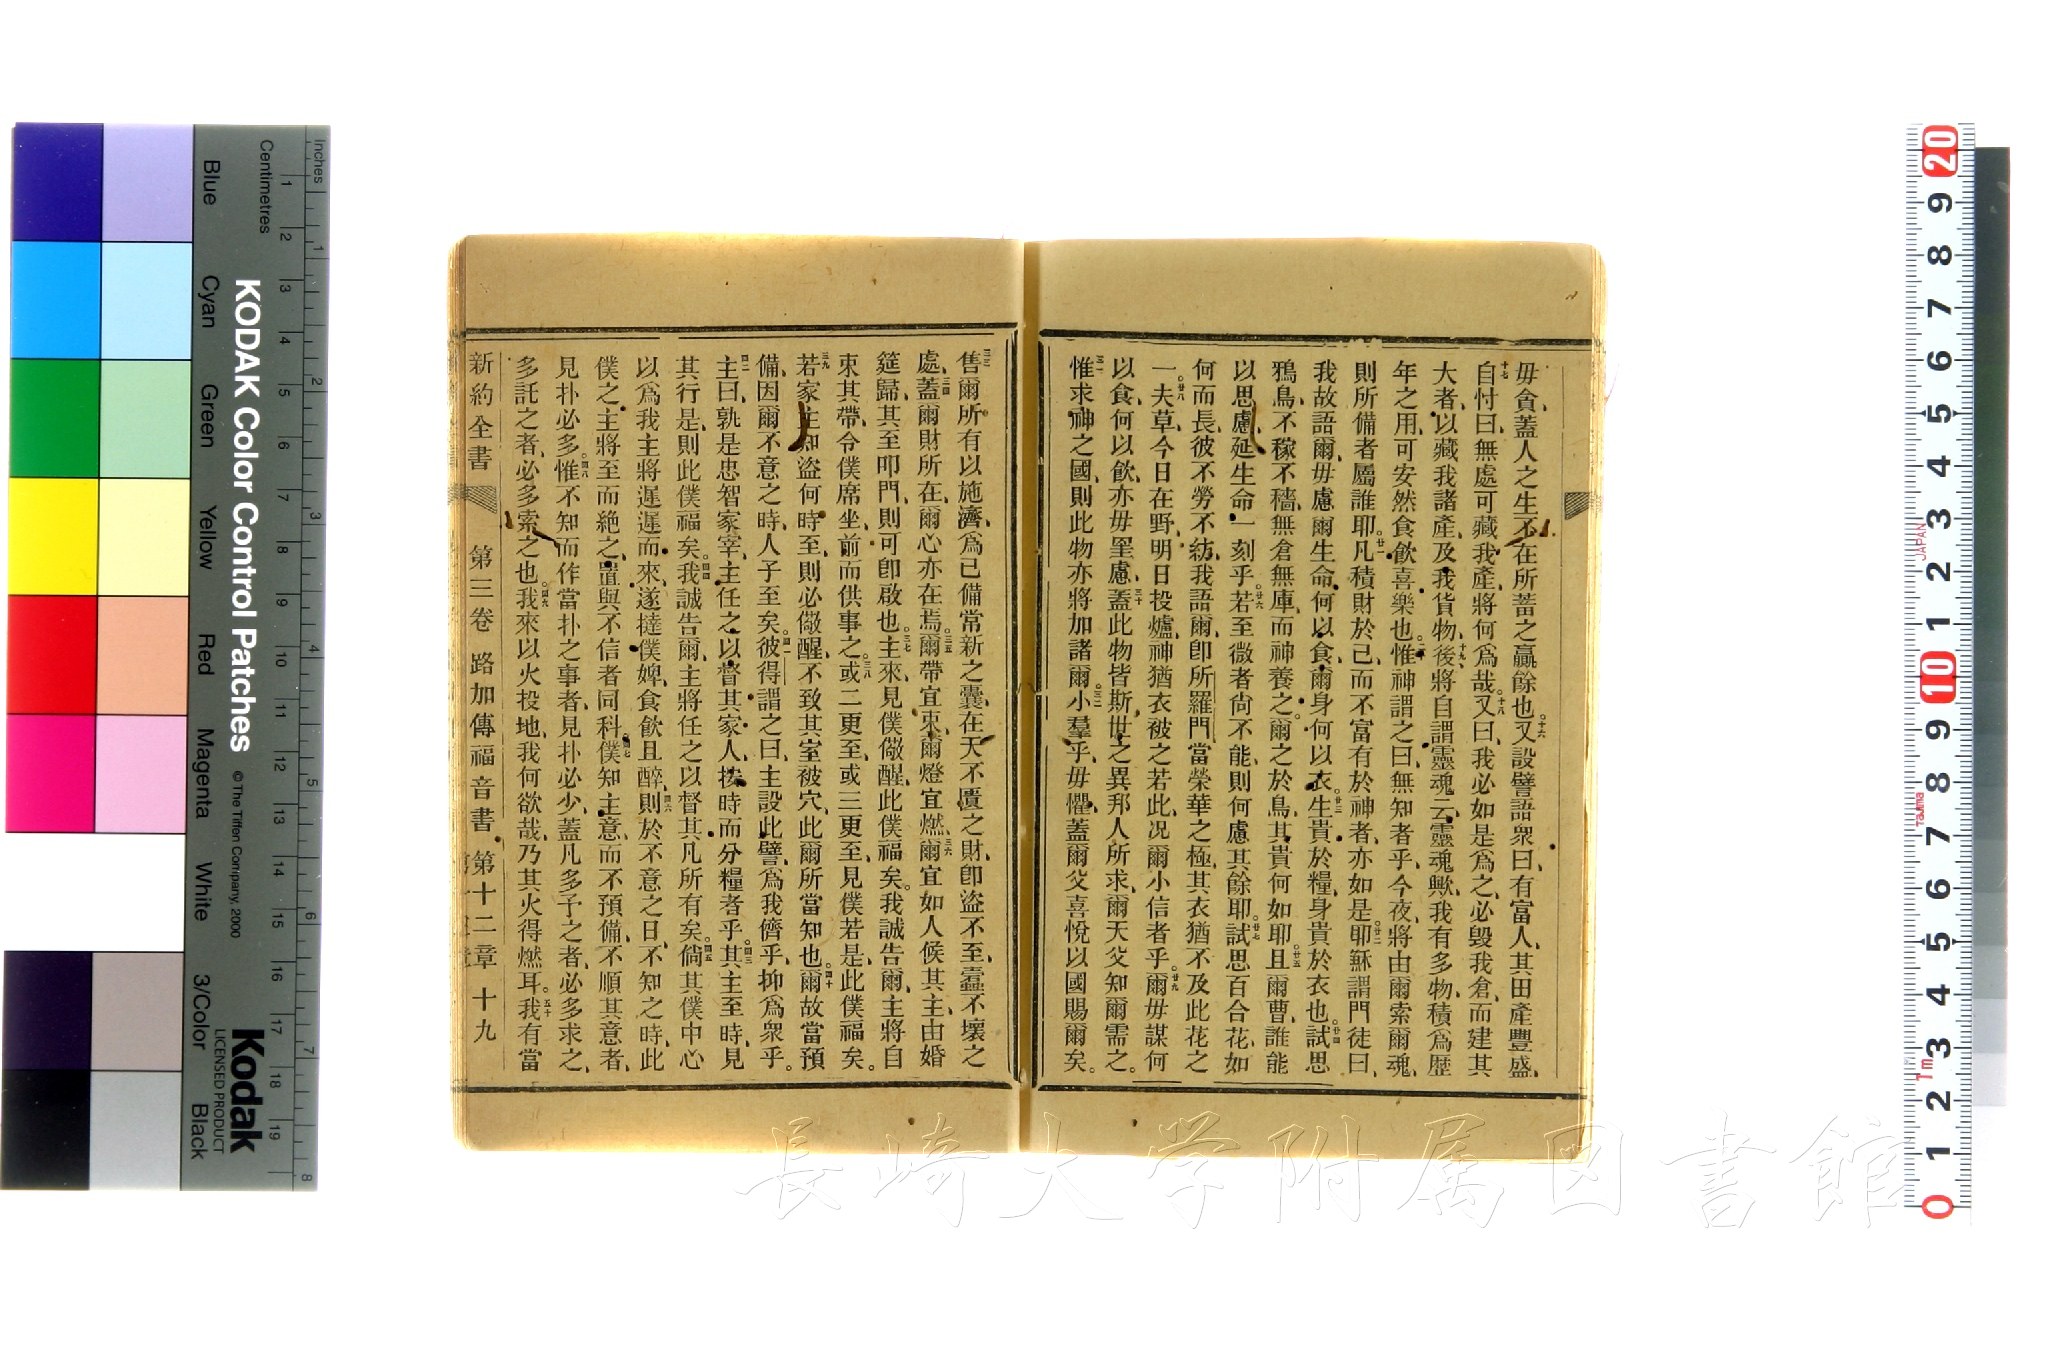 毋貪、蓋人之生、不在所蓄之贏餘也。十六又設譬語衆曰、有富人、其田產豐盛、
十七自忖曰、無處可藏我產、將何爲哉。十八又曰、我必如是爲之、必毀我倉、而建其
大者、以藏我諸產、及我貨物、十九後將自謂靈魂云、靈魂歟、我有多物、積爲歷
年之用、可安然食飲喜樂也。二十惟神謂之曰、無知者乎、今夜、將由爾索爾魂、
則所備者屬誰耶。廿一凡積財於己、而不富有於神者、亦如是。廿二耶穌謂門徒曰、
我故語爾、毋慮爾生命、何以食、爾身何以衣、廿三生貴於糧、身貴於衣也。廿四試思
鴉鳥、不稼不穡、無倉無庫、而神養之。爾之於鳥、其貴何如耶。廿五且爾曹、誰能
以思慮、延生命一刻乎。廿六若至微者尙不能、則何慮其餘耶。廿七試思百合花、如
何而長、彼不勞不紡、我語爾、卽所羅門、當榮華之極、其衣猶不及此花之
一、廿八夫草、今日在野、明日投爐、神猶衣被之若此、况爾小信者乎。廿九爾毋謀何
以食、何以飲、亦毋罣慮、三十蓋此物皆斯世之異邦人所求、爾天父知爾需之。
三一惟求神之國、則此物亦將加諸爾。三二小羣乎、毋懼、蓋爾父喜悅以國賜爾矣。
三三售爾所有以施濟、爲已備常新之囊、在天不匱之財、卽盜不至、蠹不壞之
處、三四蓋爾財所在、爾心亦在焉。三五爾帶宜束、爾燈宜燃、三六爾宜如人候其主、由婚
筵歸、其至叩門、則可卽啟也。三七主來、見僕儆醒、此僕福矣。我誠告爾、主將自
束其帶、令僕席坐、前而供事之。三八或二更至、或三更至、見僕若是、此僕福矣。
三九若家主知盜何時至、則必儆醒、不致其室被穴、此爾所當知也。四十爾故當預
備、因爾不意之時、人子至矣。四一彼得謂之曰、主設此譬、爲我儕乎、抑爲衆乎。
四二主曰、孰是忠智家宰、主任之以督其家人、按時而分糧者乎。四三其主至時、見
其行是、則此僕福矣。四四我誠告爾、主將任之以督其凡所有矣。四五倘其僕中心
以爲我主將遲遲而來、遂撻僕婢、食飲且醉、四六則於不意之日、不知之時、此
僕之主將至而絕之、置與不信者同科。四七僕知主意、而不預備、不順其意者、
見扑必多、四八惟不知而作當扑之事者、見扑必少、蓋凡多予之者、必多求之、
多託之者、必多索之也。四九我來以火投地、我何欲哉、乃其火得燃耳。五十我有當
新約全書 第三卷 路加傳福音書 第十二章 十九
KODAK Color Control Patches
© The Tiffen Company, 2000
Kodak
LICENSED PRODUCT
Inches
Centimetres
Blue Cyan Green Yellow Red Magenta White 3/Color Black
1 2 3 4 5 6 7 8 9 10 11 12 13 14 15 16 17 18 19
1 2 3 4 5 6 7 8
20 9 8 7 6 5 4 3 2 1 10 9 8 7 6 5 4 3 2 1 0
JAPAN
Tajima
7m
長崎大学附属図書館